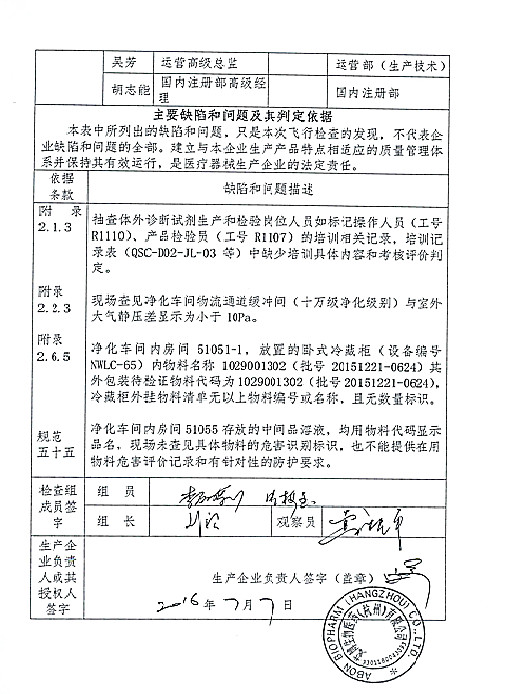 吴芳 运营高级总监 运营部（生产技术）
胡志能 国内注册部高级经 国内注册部
理
主要缺陷和问题及其判定依据
本表中所列出的缺陷和问题，只是本次飞行检查的发现，不代表企
业缺陷和问题的全部。建立与本企业生产产品特点相适应的质量管理体
系并保持其有效运行，是医疗器械生产企业的法定责任。
依据
条款
缺陷和问题描述
附 录
2.1.3
抽查体外诊断试剂生产和检验岗位人员如标记操作人员（工号
R1110）、产品检验员（工号 R1107）的培训相关记录，培训记
录表（QSC-D02-JL-03 等）中缺少培训具体内容和考核评价判
定。
附录
2.2.3
现场查见净化车间物流通道缓冲间（十万级净化级别）与室外
大气静压差显示为小于 10Pa。
附录
2.6.5
净化车间内房间 51051-1，放置的卧式冷藏柜（设备编号
NWLC-65）内物料名称 1029001302（批号 20151221-0624）其
外包装待验证物料代码为 1029001302（批号 20151221-0624），
冷藏柜外挂物料清单无以上物料编号或名称，且无数量标识。
规范
五十五
净化车间内房间 51055 存放的中间品溶液，均用物料代码显示
品名，现场未查见具体物料的危害识别标识，也不能提供在用
物料危害评价记录和有针对性的防护要求。
检查组
成员签
字
组 员
组 长
观察员
生产企
业负责
人或其
授权人
签字
生产企业负责人签字（盖章）
2016年7月7日
ABON BIOPHARM (HANGZHOU) CO., LTD.